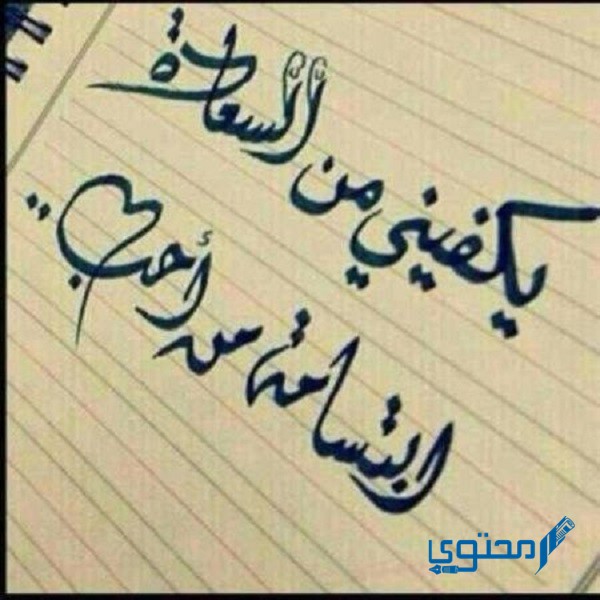 يكفيني من السعادة
ابتسامة من أحب..
محتوى